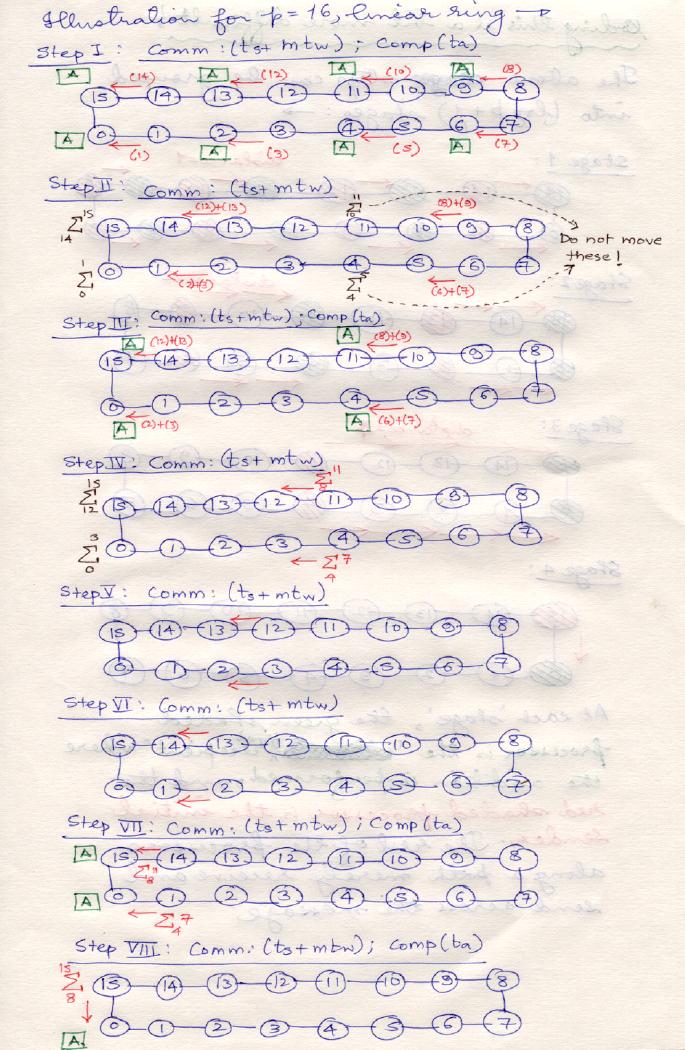 Illustration for p=16, linear ring →
Step I : Comm : (ts + mtw) ; Comp (ta)
A (14) A (12) A (10) A (8)
15 14 13 12 11 10 9 8
0 1 2 3 4 5 6 7
A (1) A (3) A (5) A (7)
Step II : Comm : (ts + mtw)
(12)+(13) Σ 11 (8)+(9)
Σ 15 14 15 14 13 12 11 10 9 8
Do not move these!
Σ 1 0 0 1 2 3 4 5 6 7
(2)+(3) Σ 4 (6)+(7)
Step III : Comm : (ts + mtw) ; Comp (ta)
A (12)+(13) A (8)+(9)
15 14 13 12 11 10 9 8
0 1 2 3 4 5 6 7
A (2)+(3) A (6)+(7)
Step IV : Comm : (ts + mtw)
Σ 15 12 ← Σ 11 8
15 14 13 12 11 10 9 8
Σ 3 0 0 1 2 3 4 5 6 7
← Σ 7 4
Step V : Comm : (ts + mtw)
15 14 13 12 11 10 9 8
0 1 2 3 4 5 6 7
Step VI : Comm : (ts + mtw)
15 14 13 12 11 10 9 8
0 1 2 3 4 5 6 7
Step VII : Comm : (ts + mtw) ; Comp (ta)
A 15 14 13 12 11 10 9 8
Σ 11 8
A 0 1 2 3 4 5 6 7
← Σ 7 4
Step VIII : Comm : (ts + mtw) ; Comp (ta)
Σ 15 8 15 14 13 12 11 10 9 8
0 1 2 3 4 5 6 7
A